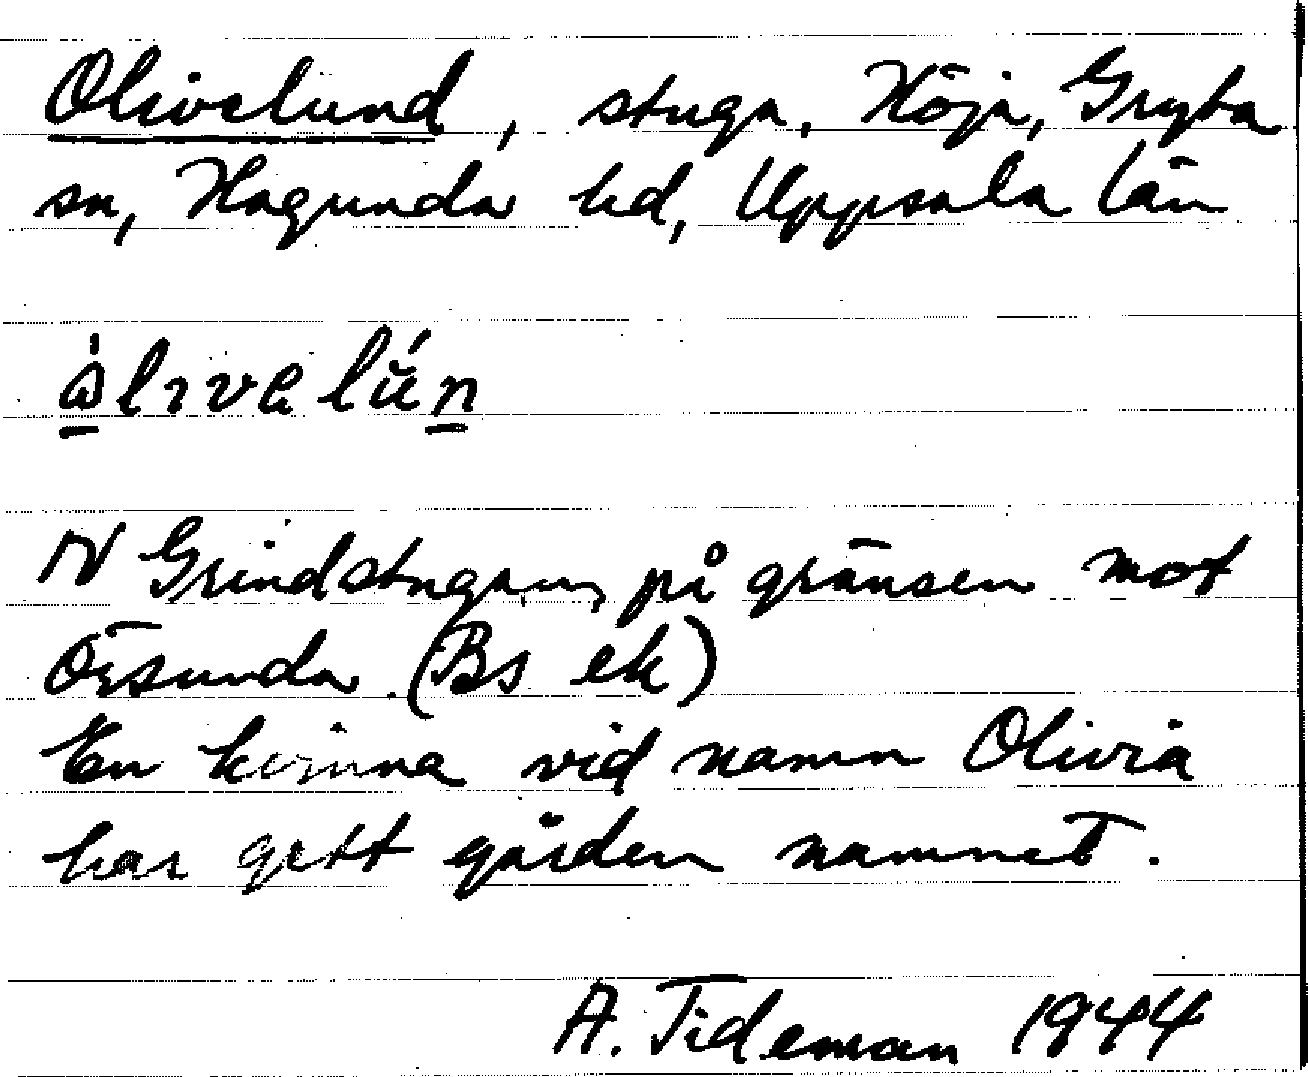 Olivelund, stuga, Höja, Gryta
sn, Hagunda hd, Uppsala län
àlivelún
N Grindstugan, på gränsen mot
Örsunda. (Bs ek)
En kvinna vid namn Olivia
har gett gården namnet.
A. Tideman 1944